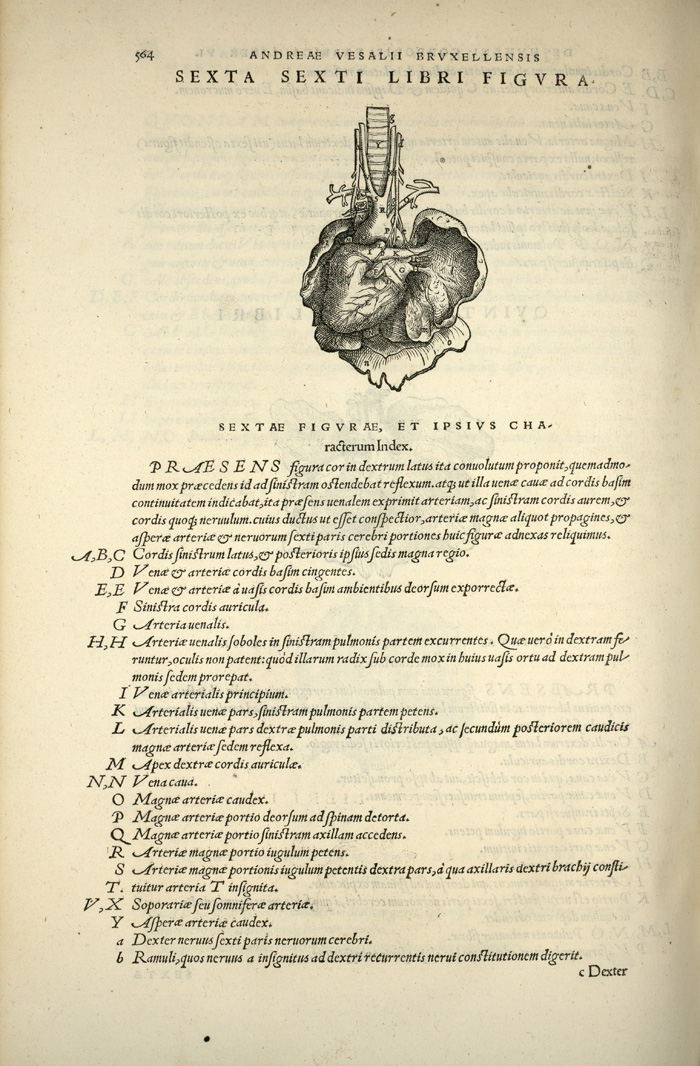 564 ANDREAE VESALII BRVXELLENSIS
SEXTA SEXTI LIBRI FIGVRA.
SEXTAE FIGVRAE, ET IPSIVS CHA-
racterum Index.
PRAESENS figura cor in dextrum latus ita conuolutum proponit, quemadmo-
dum mox præcedens id ad sinistram ostendebat reflexum. atq; ut illa uenæ cauæ ad cordis basim
continuitatem indicabat, ita præsens uenalem exprimit arteriam, ac sinistram cordis aurem, &
cordis quoq; neruulum. cuius ductus ut esset conspectior, arteriæ magnæ aliquot propagines, &
asperæ arteriæ & neruorum sexti paris cerebri portiones huic figuræ adnexas reliquimus.
A, B, C Cordis sinistrum latus, & posterioris ipsius sedis magna regio.
D Venæ & arteriæ cordis basim cingentes.
E, E Venæ & arteriæ à uasis cordis basim ambientibus deorsum exporrectæ.
F Sinistra cordis auricula.
G Arteria uenalis.
H, H Arteriæ uenalis soboles in sinistram pulmonis partem excurrentes. Quæ uerò in dextram fe-
runtur, oculis non patent: quòd illarum radix sub corde mox in huius uasis ortu ad dextram pul-
monis sedem prorepat.
I Venæ arterialis principium.
K Arterialis uenæ pars, sinistram pulmonis partem petens.
L Arterialis uenæ pars dextræ pulmonis parti distributa, ac secundùm posteriorem caudicis
magnæ arteriæ sedem reflexa.
M Apex dextræ cordis auriculæ.
N, N Vena caua.
O Magnæ arteriæ caudex.
P Magnæ arteriæ portio deorsum ad spinam detorta.
Q Magnæ arteriæ portio sinistram axillam accedens.
R Arteriæ magnæ portio iugulum petens.
S Arteriæ magnæ portionis iugulum petentis dextra pars, à qua axillaris dextri brachij consti-
T. tuitur arteria T insignita.
V, X Soporariæ seu somniferæ arteriæ.
Y Asperæ arteriæ caudex.
a Dexter neruus sexti paris neruorum cerebri.
b Ramuli, quos neruus a insignitus ad dextri recurrentis nerui constitutionem digerit.
c Dexter